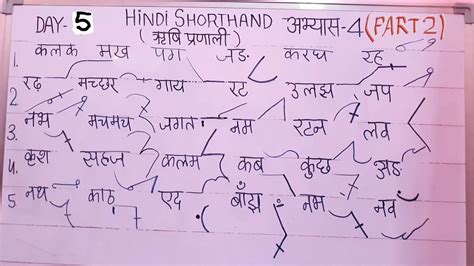 DAY- 5 HINDI SHORTHAND अभ्यास-4 (PART 2)
(ऋषि प्रणाली)
1. कलक मख पग जड करघ रह
2. रढ़ मच्छर गाय रट उलझ जप
3. नभ मचमच जगत नम रटन लव
4. कृश सहज कलम कब कुछ अड
5. नथ काठ एद बाँझ नभ नव